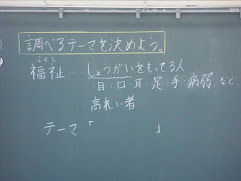 調べるテーマを決めよう。
ふくし
福祉…しょうがいをもってる人
・目・口・耳・足・手・病弱など
・高れい者
テーマ「　　　　」